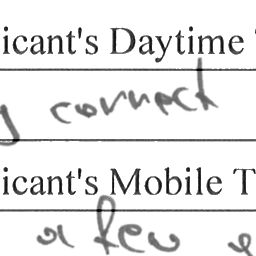 icant's Daytime
connect
icant's Mobile T
a few